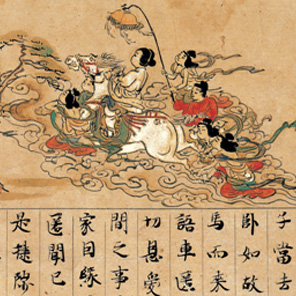 子當去
卧如故
馬而来
語車匿
切恩愛
間之事
家因緣
匿聞已
是揵陟